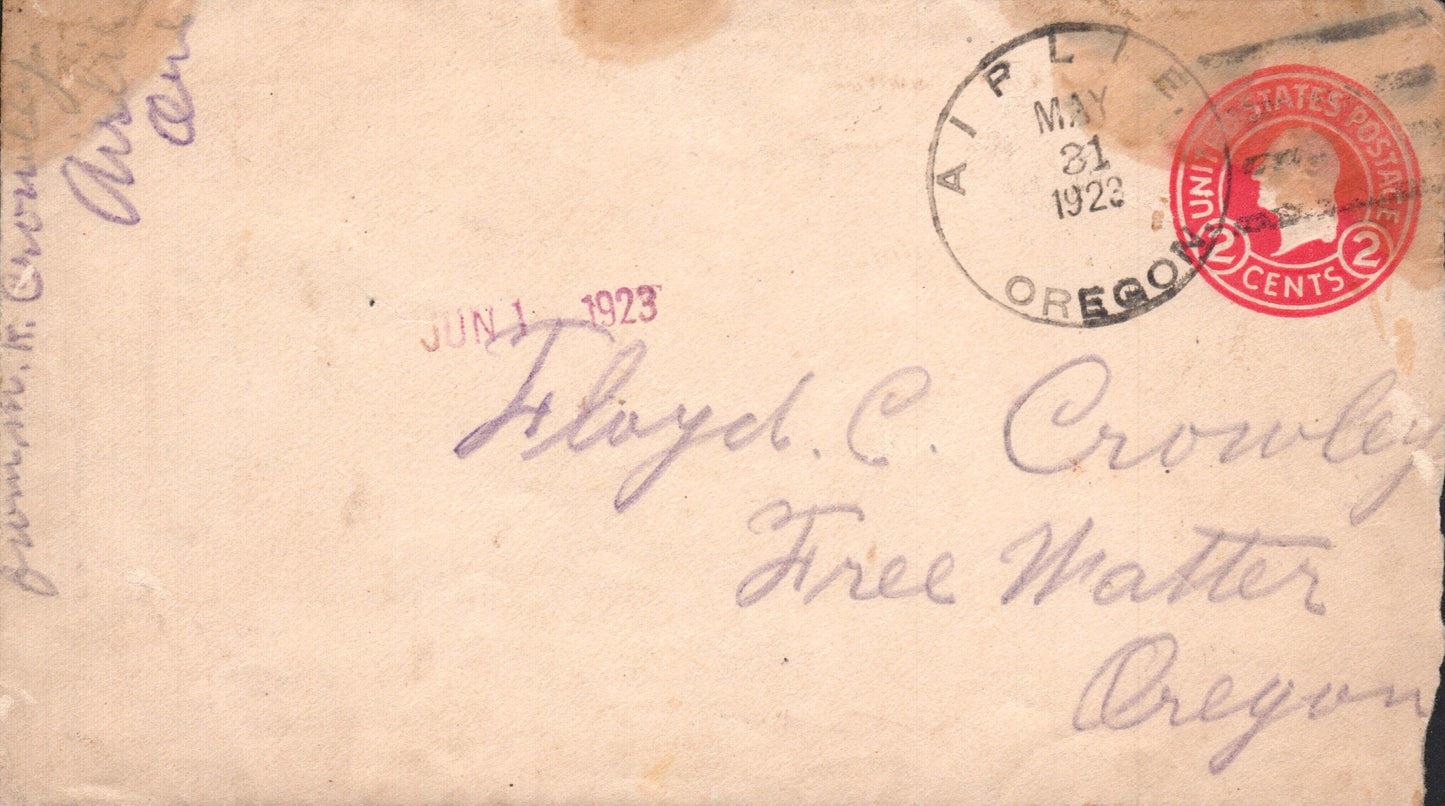 from M. H. Crowley
Airlie
Ore
AIRLIE.
MAY
31
1923
OREGON.
UNITED STATES POSTAGE
2 CENTS 2
JUN 1 1923
Floyd. C. Crowley
Free Watter
Oregon